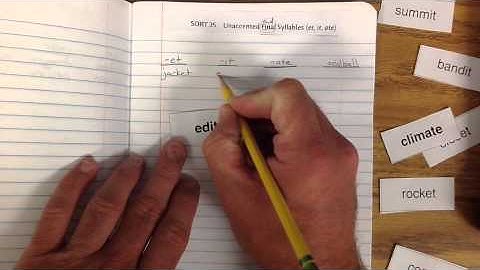 end
SORT 25 Unaccented Final Syllables (et, it, ate)
-et -it -ate oddball
jacket
edit
summit
bandit
climate
closet
rocket